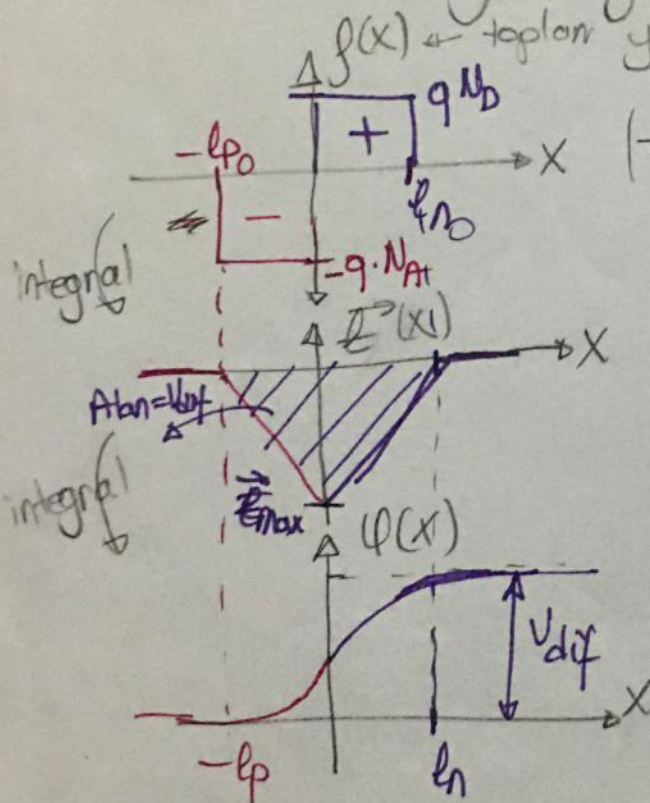 ρ(x) ← toplam y
qN_D
+
-l_p0
x
l_n0
(-
−
-q.N_A
integral
E(x)
x
Alan=V_dif
E_max
integral
φ(x)
V_dif
x
-l_p
l_n